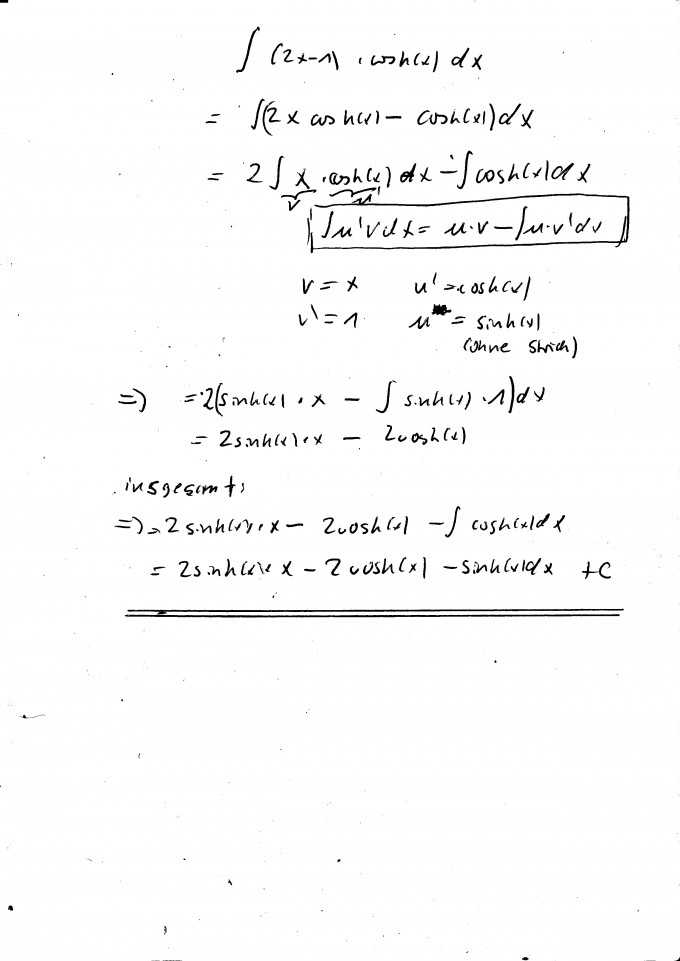 ∫ (2x-1) · cosh(x) dx
= ∫(2x cosh(x) - cosh(x)) dx
= 2 ∫ x · cosh(x) dx - ∫ cosh(x) dx
v u'
∫u'v dx = u·v - ∫u·v' dx
v = x u' = cosh(x)
v' = 1 u = sinh(x)
(ohne Strich)
=> = 2(sinh(x) · x - ∫ sinh(x) · 1) dx
= 2sinh(x) · x - 2cosh(x)
insgesamt:
=> = 2 sinh(x) · x - 2cosh(x) - ∫ cosh(x) dx
= 2sinh(x) · x - 2cosh(x) - sinh(x) dx + C